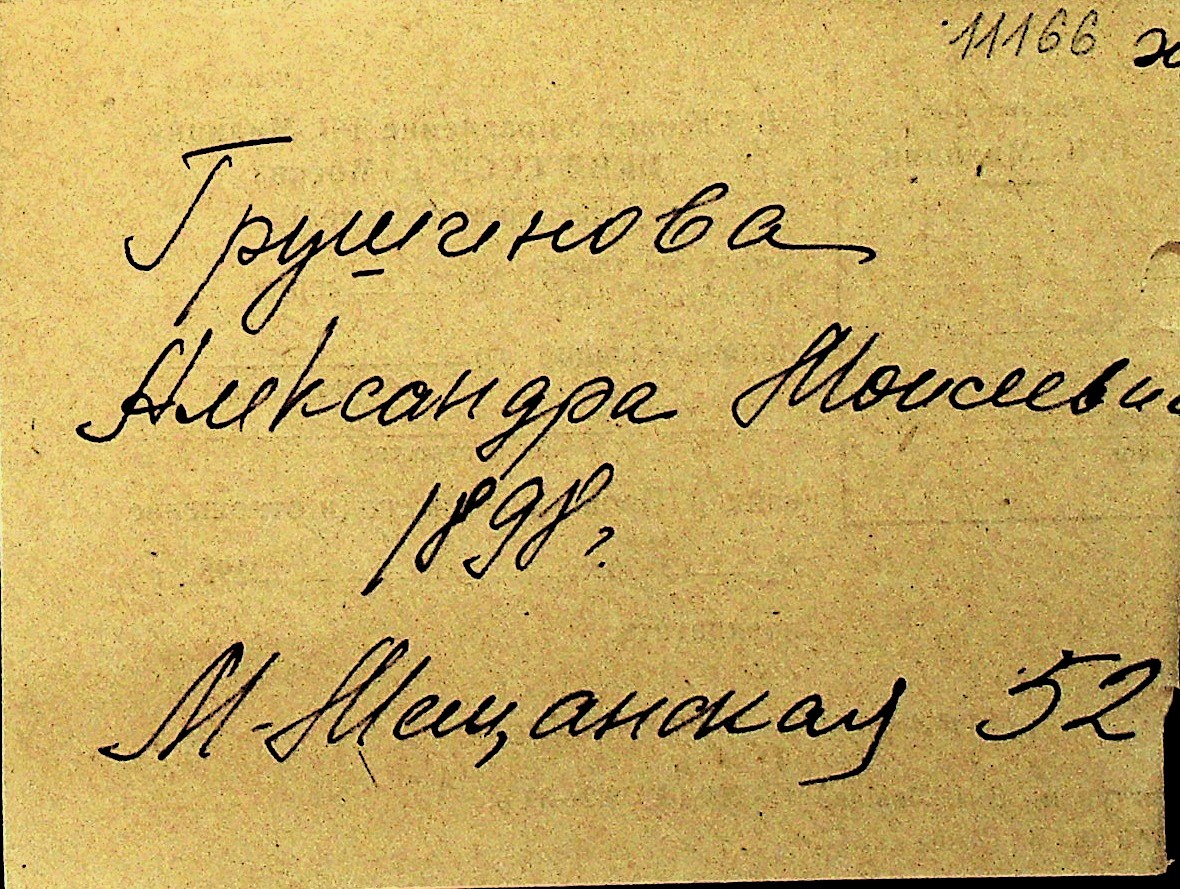 11166
Грушинова
Александра Моисеевн
1898г
М-Мещанская 52